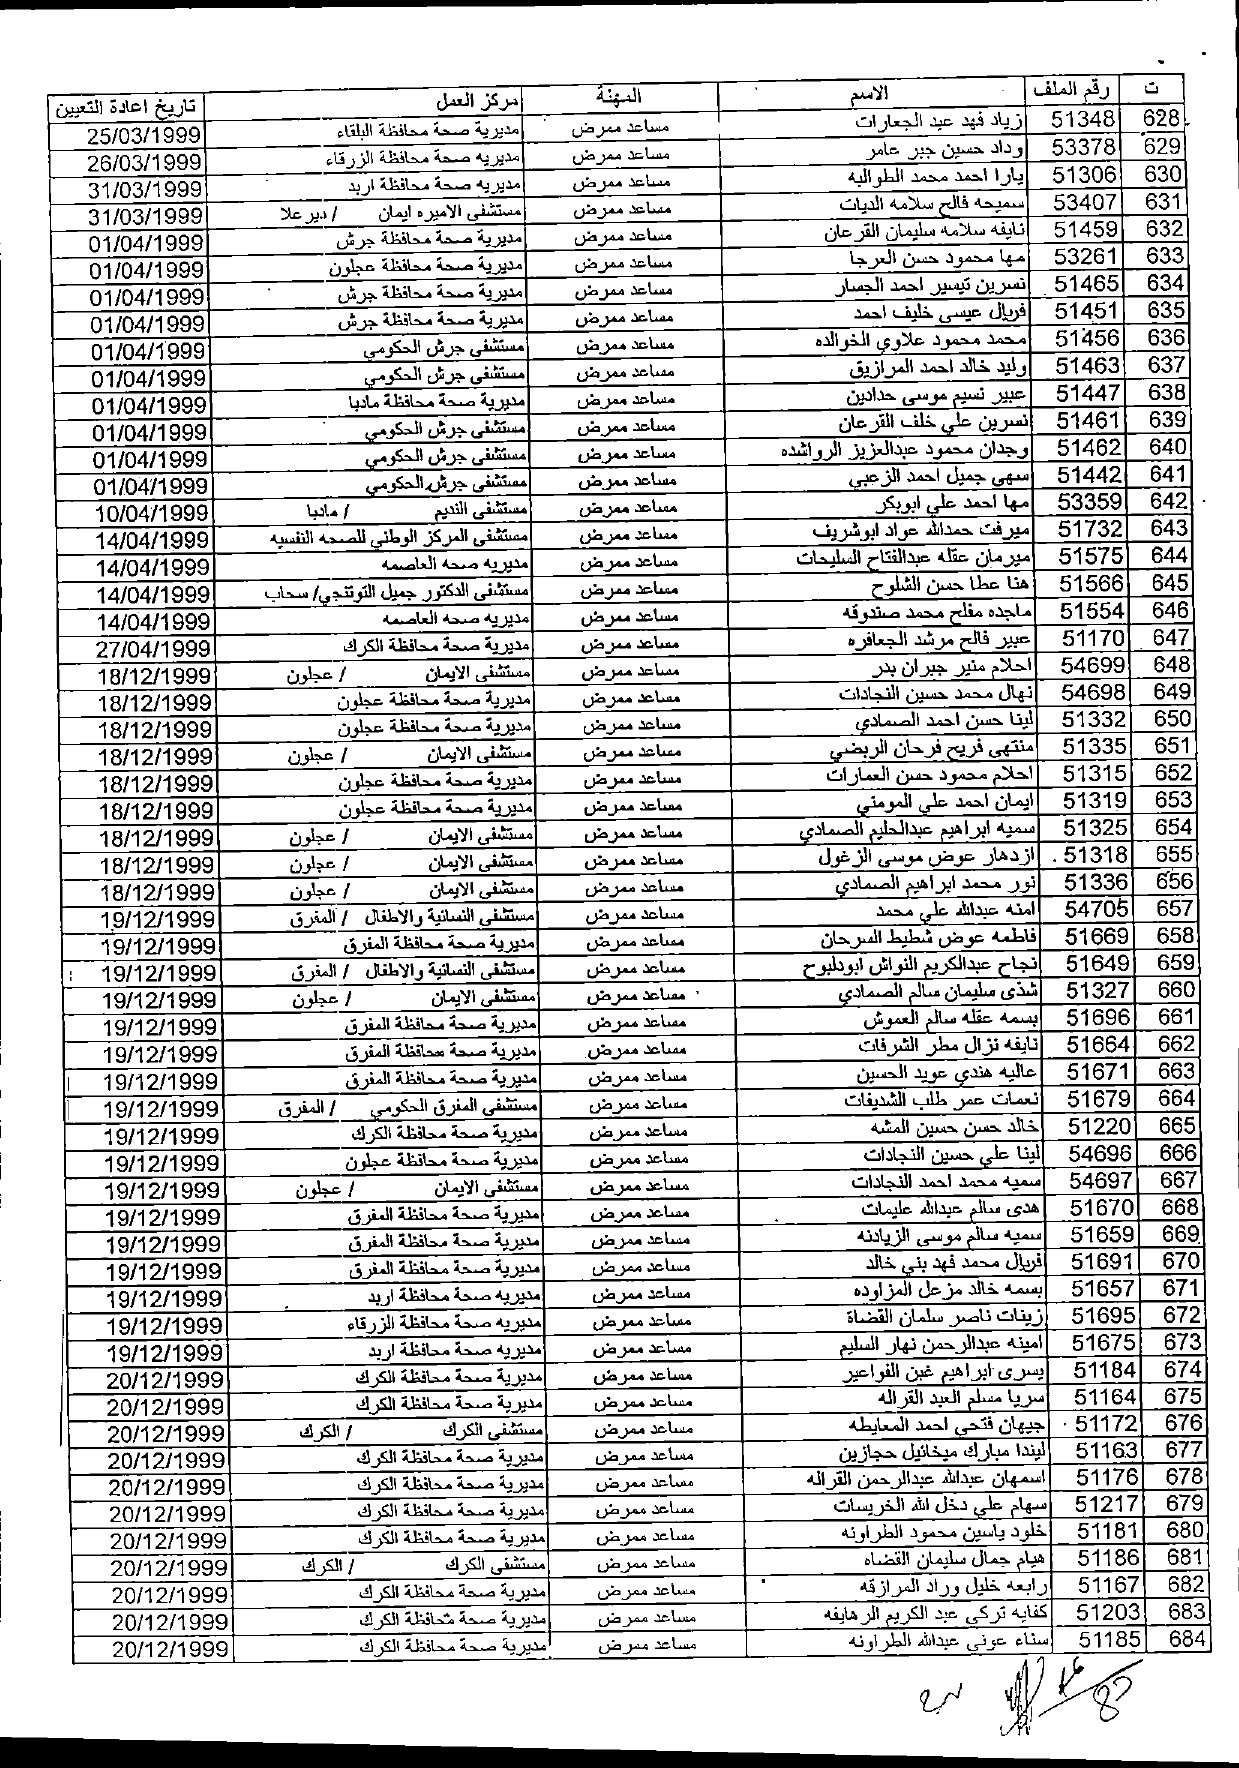 ت رقم الملف الاسم المهنة مركز العمل تاريخ اعادة التعيين
628 51348 زياد فهد عبد الجعارات مساعد ممرض مديرية صحة محافظة البلقاء 25/03/1999
629 53378 وداد حسين جبر عامر مساعد ممرض مديريه صحة محافظة الزرقاء 26/03/1999
630 51306 يارا احمد محمد الطوالبه مساعد ممرض مديريه صحة محافظة اربد 31/03/1999
631 53407 سميحه فالح سلامه الديات مساعد ممرض مستشفى الاميره ايمان / دير علا 31/03/1999
632 51459 نايفه سلامه سليمان القرعان مساعد ممرض مديرية صحة محافظة جرش 01/04/1999
633 53261 مها محمود حسن العرجا مساعد ممرض مديرية صحة محافظة عجلون 01/04/1999
634 51465 نسرين تيسير احمد الجسار مساعد ممرض مديرية صحة محافظة جرش 01/04/1999
635 51451 فريال عيسى خليف احمد مساعد ممرض مديرية صحة محافظة جرش 01/04/1999
636 51456 محمد محمود علاوي الخوالده مساعد ممرض مستشفى جرش الحكومي 01/04/1999
637 51463 وليد خالد احمد المرازيق مساعد ممرض مستشفى جرش الحكومي 01/04/1999
638 51447 عبير نسيم موسى حدادين مساعد ممرض مديرية صحة محافظة مادبا 01/04/1999
639 51461 نسرين علي خلف القرعان مساعد ممرض مستشفى جرش الحكومي 01/04/1999
640 51462 وجدان محمود عبدالعزيز الرواشده مساعد ممرض مستشفى جرش الحكومي 01/04/1999
641 51442 سهى جميل احمد الزعبي مساعد ممرض مستشفى جرش الحكومي 01/04/1999
642 53359 مها احمد علي ابوبكر مساعد ممرض مستشفى النديم / مادبا 10/04/1999
643 51732 ميرفت حمدالله عواد ابوشريف مساعد ممرض مستشفى المركز الوطني للصحه النفسيه 14/04/1999
644 51575 ميرمان عقله عبدالفتاح السليحات مساعد ممرض مديريه صحه العاصمه 14/04/1999
645 51566 هنا عطا حسن الشلوح مساعد ممرض مستشفى الدكتور جميل التوتنجي/ سحاب 14/04/1999
646 51554 ماجده مفلح محمد صندوقه مساعد ممرض مديريه صحه العاصمه 14/04/1999
647 51170 عبير فالح مرشد الجعافره مساعد ممرض مديرية صحة محافظة الكرك 27/04/1999
648 54699 احلام منير جبران بدر مساعد ممرض مستشفى الايمان / عجلون 18/12/1999
649 54698 نهال محمد حسين النجادات مساعد ممرض مديرية صحة محافظة عجلون 18/12/1999
650 51332 لينا حسن احمد الصمادي مساعد ممرض مديرية صحة محافظة عجلون 18/12/1999
651 51335 منتهى فريح فرحان الربضي مساعد ممرض مستشفى الايمان / عجلون 18/12/1999
652 51315 احلام محمود حسن العمارات مساعد ممرض مديرية صحة محافظة عجلون 18/12/1999
653 51319 ايمان احمد علي المومني مساعد ممرض مديرية صحة محافظة عجلون 18/12/1999
654 51325 سميه ابراهيم عبدالحليم الصمادي مساعد ممرض مستشفى الايمان / عجلون 18/12/1999
655 51318 ازدهار عوض موسى الزغول مساعد ممرض مستشفى الايمان / عجلون 18/12/1999
656 51336 نور محمد ابراهيم الصمادي مساعد ممرض مستشفى الايمان / عجلون 18/12/1999
657 54705 امنه عبدالله علي محمد مساعد ممرض مستشفى النسائية والاطفال / المفرق 19/12/1999
658 51669 فاطمه عوض شطيط السرحان مساعد ممرض مديرية صحة محافظة المفرق 19/12/1999
659 51649 نجاح عبدالكريم النواش ابودلبوح مساعد ممرض مستشفى النسائية والاطفال / المفرق 19/12/1999
660 51327 شذى سليمان سالم الصمادي مساعد ممرض مستشفى الايمان / عجلون 19/12/1999
661 51696 بسمه عقله سالم العموش مساعد ممرض مديرية صحة محافظة المفرق 19/12/1999
662 51664 نايفه نزال مطر الشرفات مساعد ممرض مديرية صحة محافظة المفرق 19/12/1999
663 51671 عاليه هندي عويد الحسين مساعد ممرض مديرية صحة محافظة المفرق 19/12/1999
664 51679 نعمات عمر طلب الشديفات مساعد ممرض مستشفى المفرق الحكومي / المفرق 19/12/1999
665 51220 خالد حسن حسين المشه مساعد ممرض مديرية صحة محافظة الكرك 19/12/1999
666 54696 لينا علي حسين النجادات مساعد ممرض مديرية صحة محافظة عجلون 19/12/1999
667 54697 سميه محمد احمد النجادات مساعد ممرض مستشفى الايمان / عجلون 19/12/1999
668 51670 هدى سالم عبدالله عليمات مساعد ممرض مديرية صحة محافظة المفرق 19/12/1999
669 51659 سميه سالم موسى الزيادنه مساعد ممرض مديرية صحة محافظة المفرق 19/12/1999
670 51691 فريال محمد فهد بني خالد مساعد ممرض مديرية صحة محافظة المفرق 19/12/1999
671 51657 بسمه خالد مزعل المزاوده مساعد ممرض مديريه صحة محافظة اربد 19/12/1999
672 51695 زينات ناصر سلمان القضاة مساعد ممرض مديريه صحة محافظة الزرقاء 19/12/1999
673 51675 امينه عبدالرحمن نهار السليم مساعد ممرض مديريه صحة محافظة اربد 19/12/1999
674 51184 يسرى ابراهيم غبن الفواعير مساعد ممرض مديرية صحة محافظة الكرك 20/12/1999
675 51164 سريا مسلم العبد القراله مساعد ممرض مديرية صحة محافظة الكرك 20/12/1999
676 51172 جيهان فتحي احمد المعايطه مساعد ممرض مستشفى الكرك / الكرك 20/12/1999
677 51163 ليندا مبارك ميخائيل حجازين مساعد ممرض مديرية صحة محافظة الكرك 20/12/1999
678 51176 اسمهان عبدالله عبدالرحمن القراله مساعد ممرض مديرية صحة محافظة الكرك 20/12/1999
679 51217 سهام علي دخل الله الخريسات مساعد ممرض مديرية صحة محافظة الكرك 20/12/1999
680 51181 خلود ياسين محمود الطراونه مساعد ممرض مديرية صحة محافظة الكرك 20/12/1999
681 51186 هيام جمال سليمان القضاه مساعد ممرض مستشفى الكرك / الكرك 20/12/1999
682 51167 رابعه خليل وراد المرازقه مساعد ممرض مديرية صحة محافظة الكرك 20/12/1999
683 51203 كفايه تركي عبد الكريم الرهايفه مساعد ممرض مديرية صحة محافظة الكرك 20/12/1999
684 51185 سناء عوني عبدالله الطراونه مساعد ممرض مديرية صحة محافظة الكرك 20/12/1999